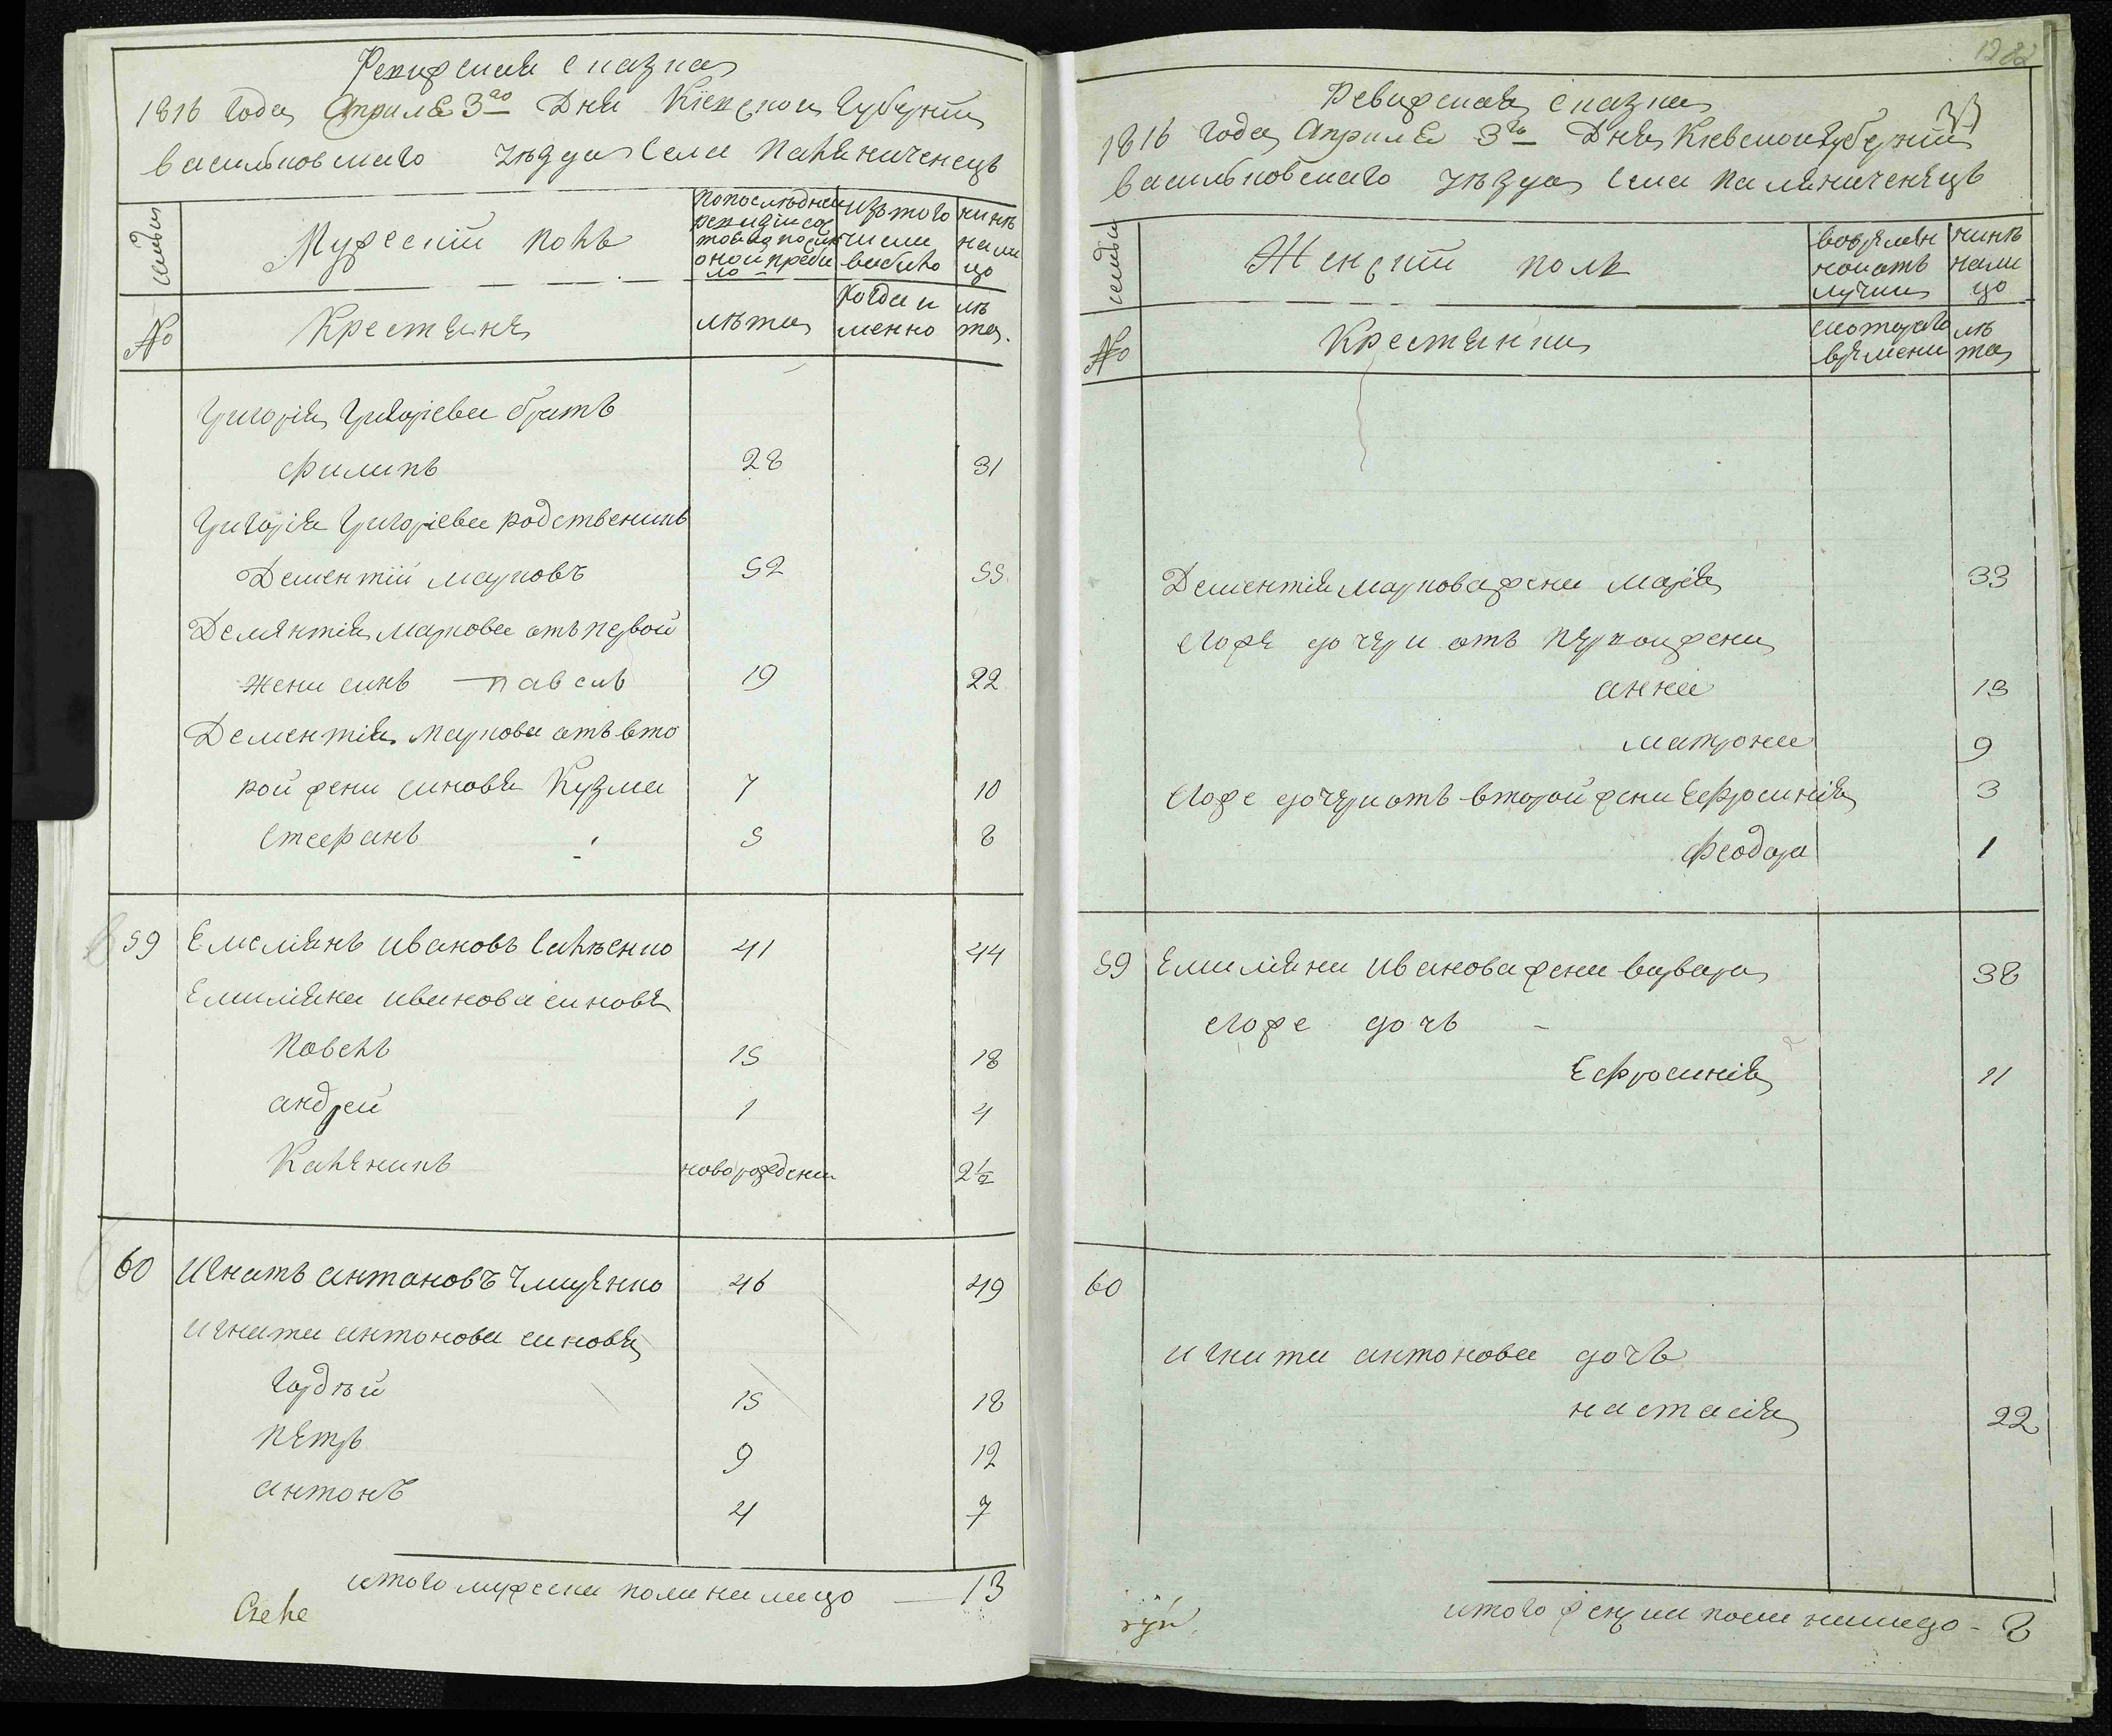 Ревизская сказка
1816 года Априля 3го Дня Кіевской Губерніи
васильковскаго уезда села паляниченецъ
семьи
Мужескій полъ
по последней ревизіи состояло и после оной прибыло
изъ того числа выбыло
ныне на лицо
№
Крестяне
лѣта
когда именно
лѣта.
Григорія Григоріева братъ
Филипъ 28 31
Григорія Григоріева родственикъ
Дементій марковъ 52 55
Дементія маркова отъ первой
жени синъ павелъ 19 22
Дементія маркова отъ вто
рой жени синовя Кузма 7 10
Стефанъ 5 8
59 Емеліянъ ивановъ 41 44
Емиліяна иванова синовя
Повелъ 15 18
андрей 1 4
Каленикъ новорожденн 2½
60 игнатъ антоновъ 46 49
игната антонова синовя
Гордѣй 15 18
Петръ 9 12
антонъ 4 7
итого мужеска пола на лицо — 13
1282
Ревизская сказка
1816 года Априля 3го Дня Кіевской губерніи
васильковскаго уезда села паляниченецъ
семьи
Женский полъ
во временной отлучки
ныне на лицо
№
Крестянки
с котораго времени
лѣта
Дементія маркова жена марія 33
его же дочери отъ первой жени
анна 13
матрона 9
его же дочери отъ второй жени Ефросинія 3
феодора 1
59 Емиліяна иванова жена варвара 38
его же дочъ -
Ефросинія 11
60
игната антонова дочъ
настасія 22
итого женска пола на лицо - 8